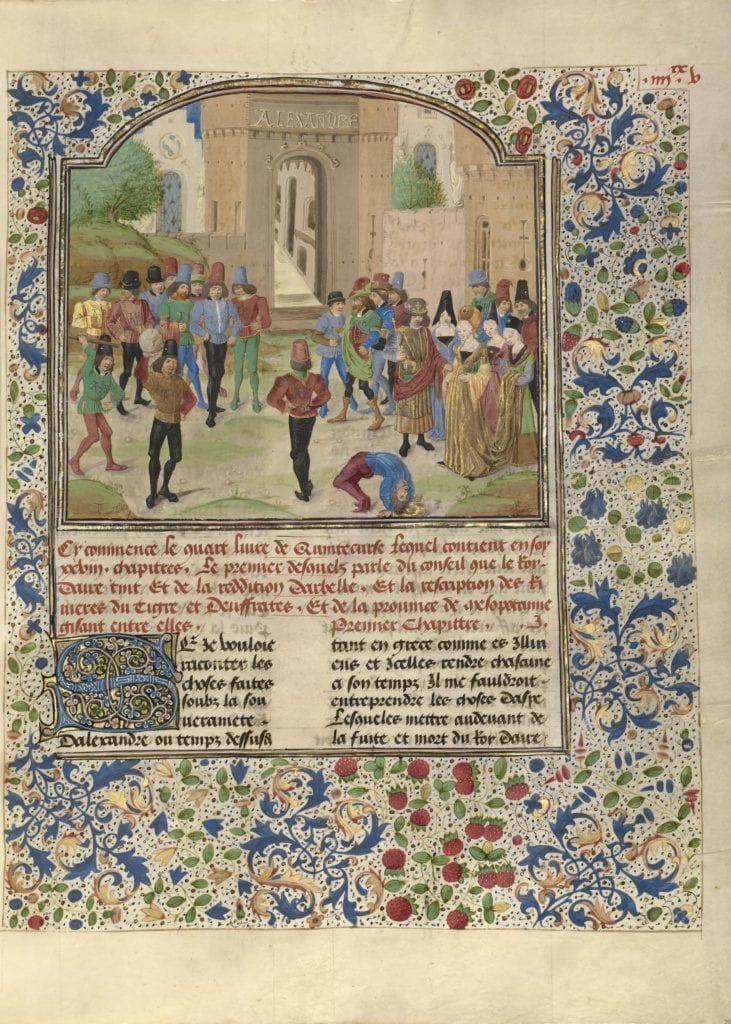 .iiii.xx v
ALEXANDRE
Cy commence le quart livre de Quintecurse Lequel contient en soy
xxviii. chapitres. Le premier desquels parle du conseil que le Roy
Daire tint Et de la reddition Darbelle. Et la rescription des Ri
uieres du Tigre et Deuffrates. Et de la prouince de mesopotamie
gisant entre elles.
Premier Chapittre. .I.
SE Je vouloie
raconter les
choses faites
soubz la sou
uerainete
Dalexandre ou temps dessusd
tant en grece comme es Illiri
ens et Icelles rendre chascune
a son temps Il me fauldroit
entreprendre les choses Dasye
Lesqueles mettre audeuant de
la fuite et mort du Roy Daire